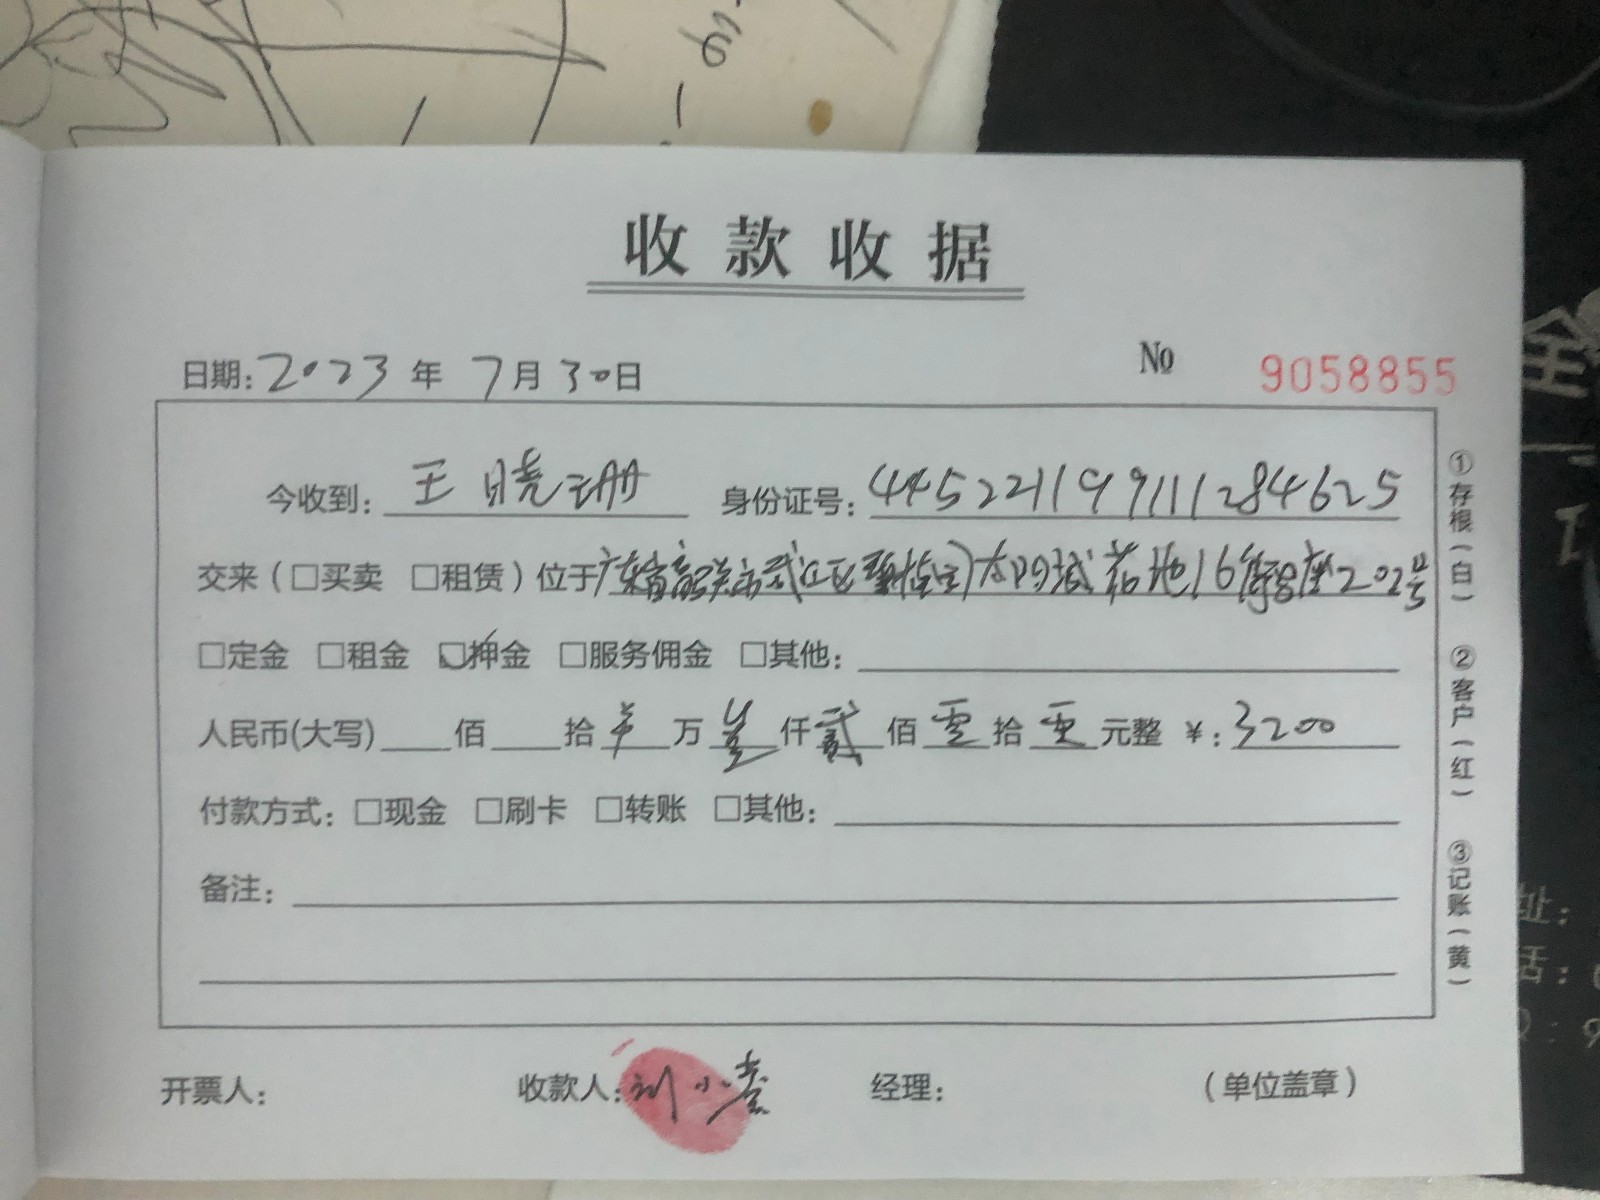 收款收据
日期: 2023 年 7 月 30 日 № 9058855
今收到: 王晓珊 身份证号: 445221199111284625
交来(□买卖 □租赁)位于广东省韶关市武江区 太阳城花地16 座202号
□定金 □租金 ☑押金 □服务佣金 □其他:
人民币(大写) 佰 拾 万 叁仟贰佰零拾零元整 ¥: 3200
付款方式: □现金 □刷卡 □转账 □其他:
备注:
开票人: 收款人: 刘小 经理: (单位盖章)
①存根(白) ②客户(红) ③记账(黄)
全
址:
话: